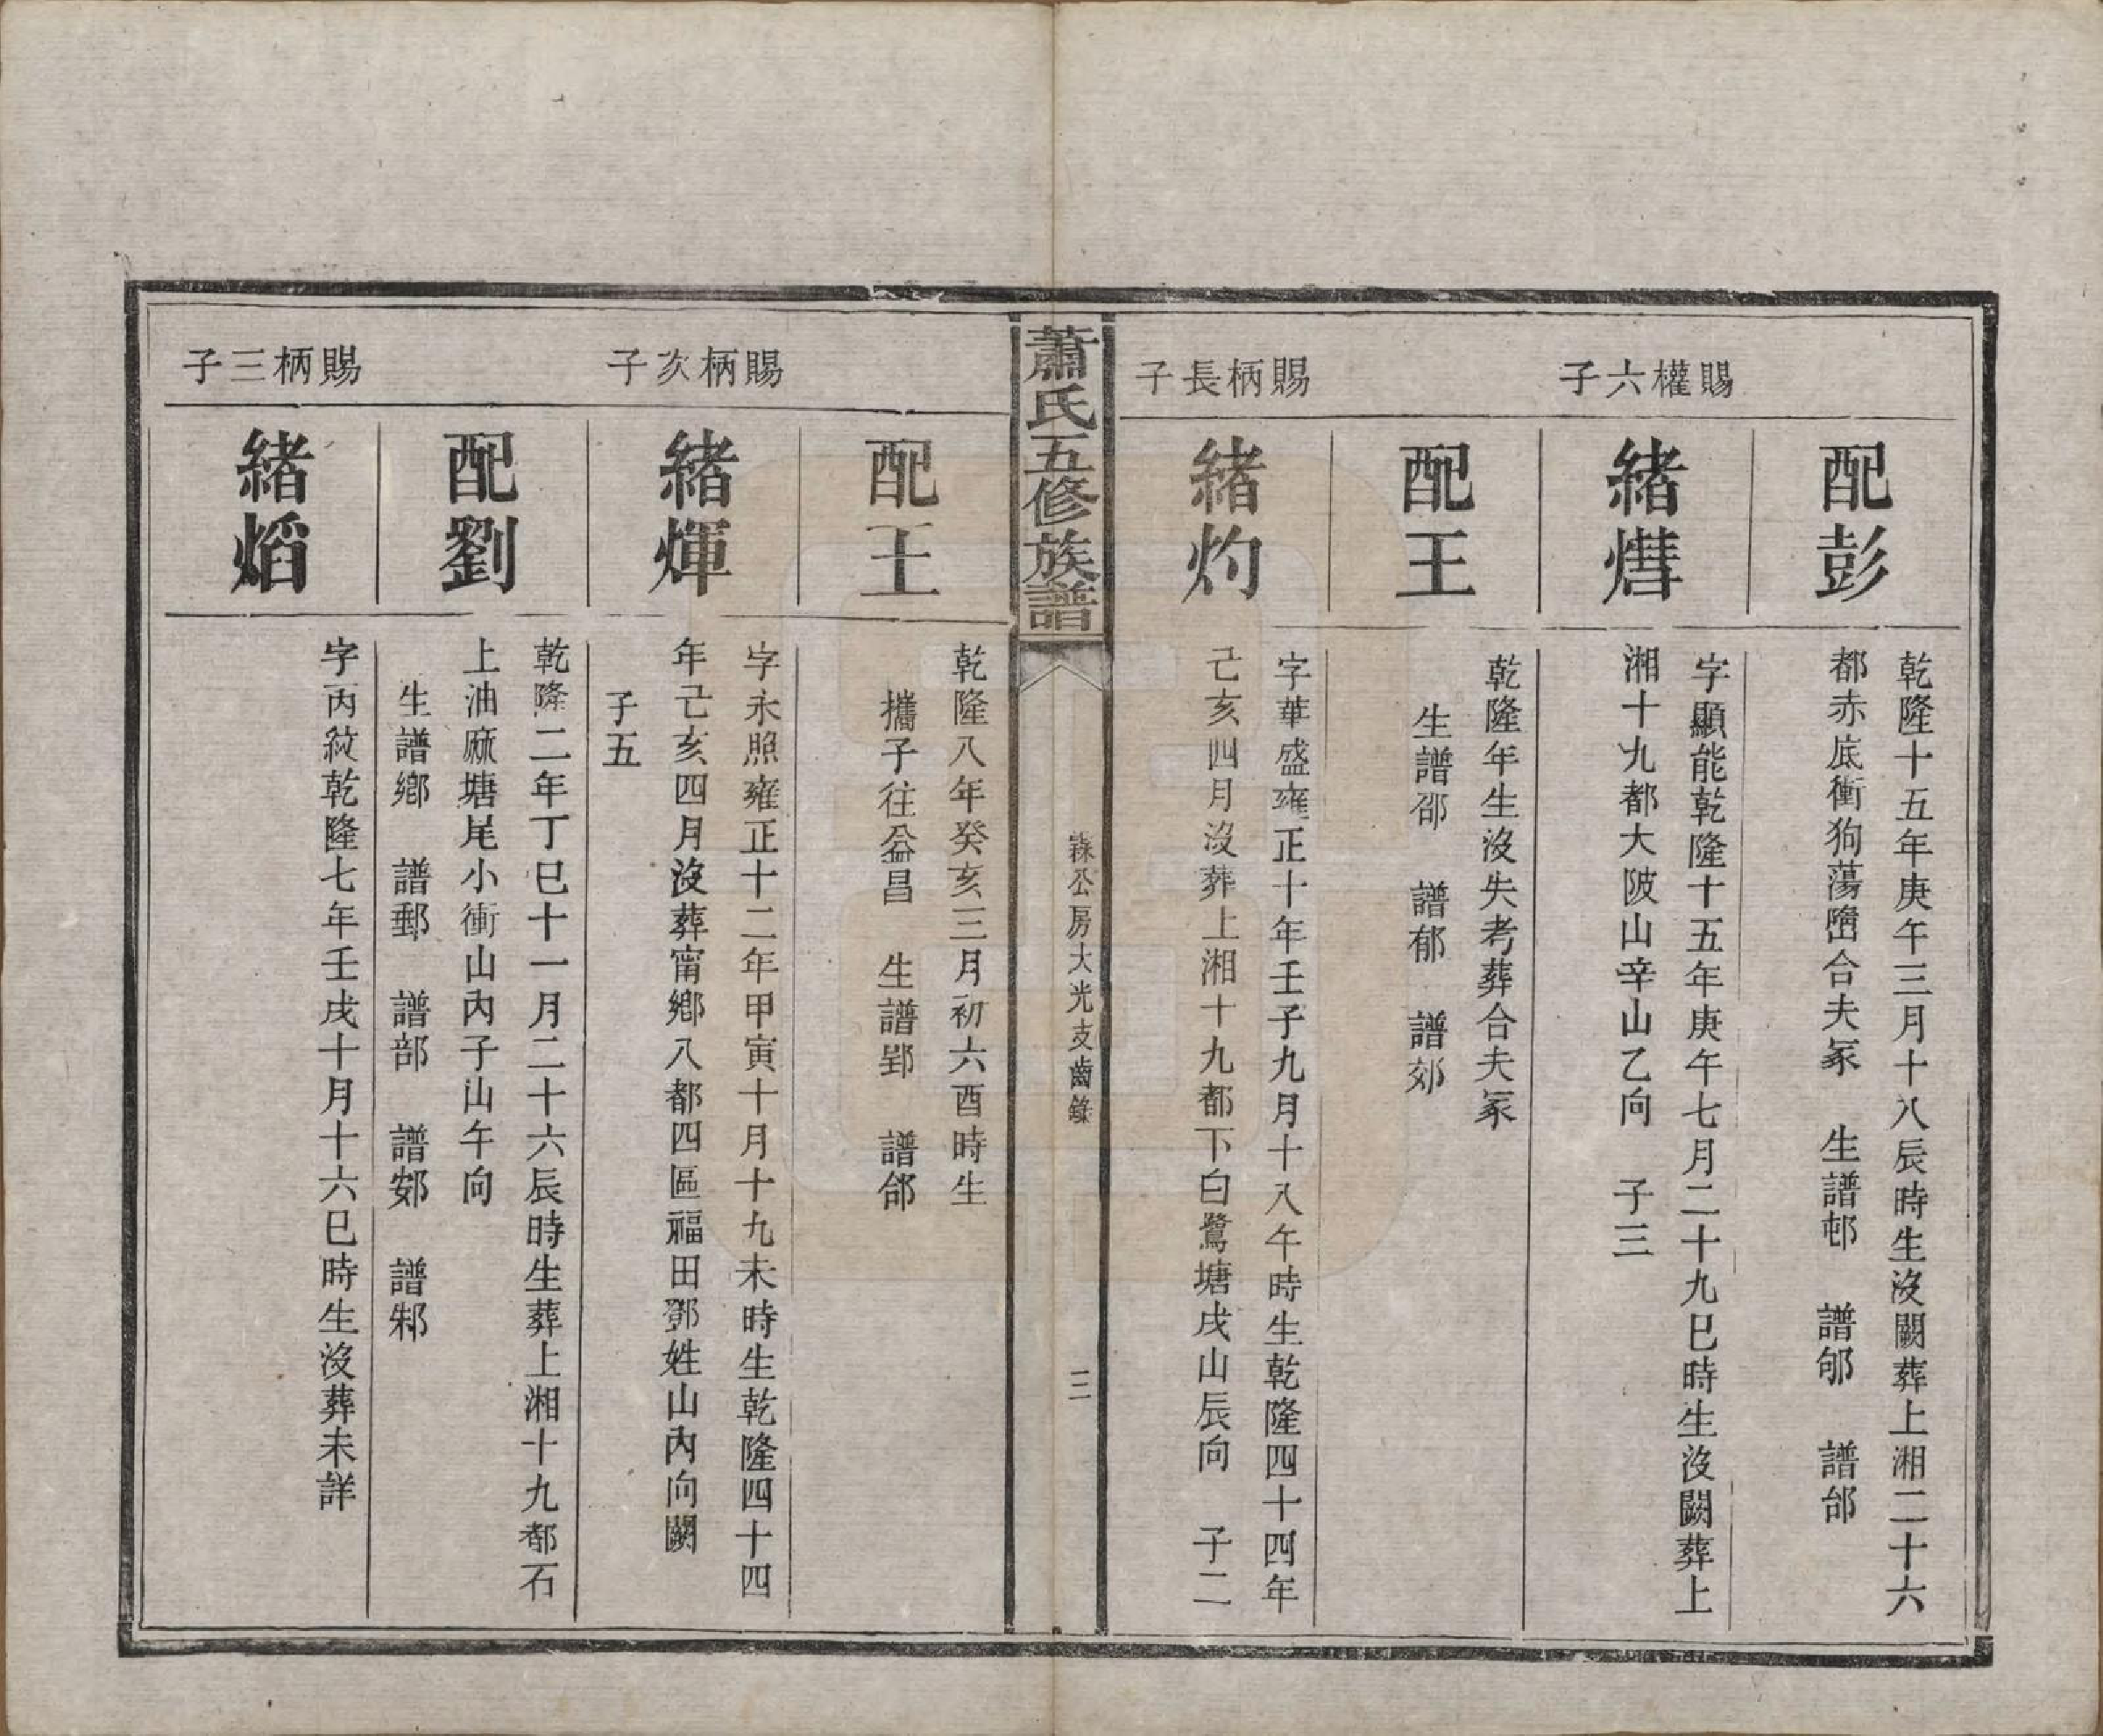 配彭
乾隆十五年庚午三月十八辰時生沒闕葬上湘二十六
都赤底衝狗蕩㙮合夫冢　生譜邨　譜郇　譜邰
賜權六子
緒㷷
字顯能乾隆十五年庚午七月二十九巳時生沒闕葬上
湘十九都大陂山辛山乙向　子三
配王
乾隆年生沒失考葬合夫冢
生譜邵　譜郁　譜郊
賜柄長子
緒灼
字華盛雍正十年壬子九月十八午時生乾隆四十四年
己亥四月沒葬上湘十九都下白鷺塘戌山辰向　子二
蕭氏五修族譜
公房大光支齒錄
三
配王
乾隆八年癸亥三月初六酉時生
攜子往益昌　生譜郢　譜郃
賜柄次子
緒煇
字永照雍正十二年甲寅十月十九未時生乾隆四十四
年己亥四月沒葬甯鄉八都四區福田鄧姓山內向闕
子五
配劉
乾隆二年丁巳十一月二十六辰時生葬上湘十九都石
上油麻塘尾小衝山內子山午向
生譜鄉　譜郵　譜部　譜郟　譜邾
賜柄三子
緒熖
字丙紋乾隆七年壬戌十月十六巳時生沒葬未詳